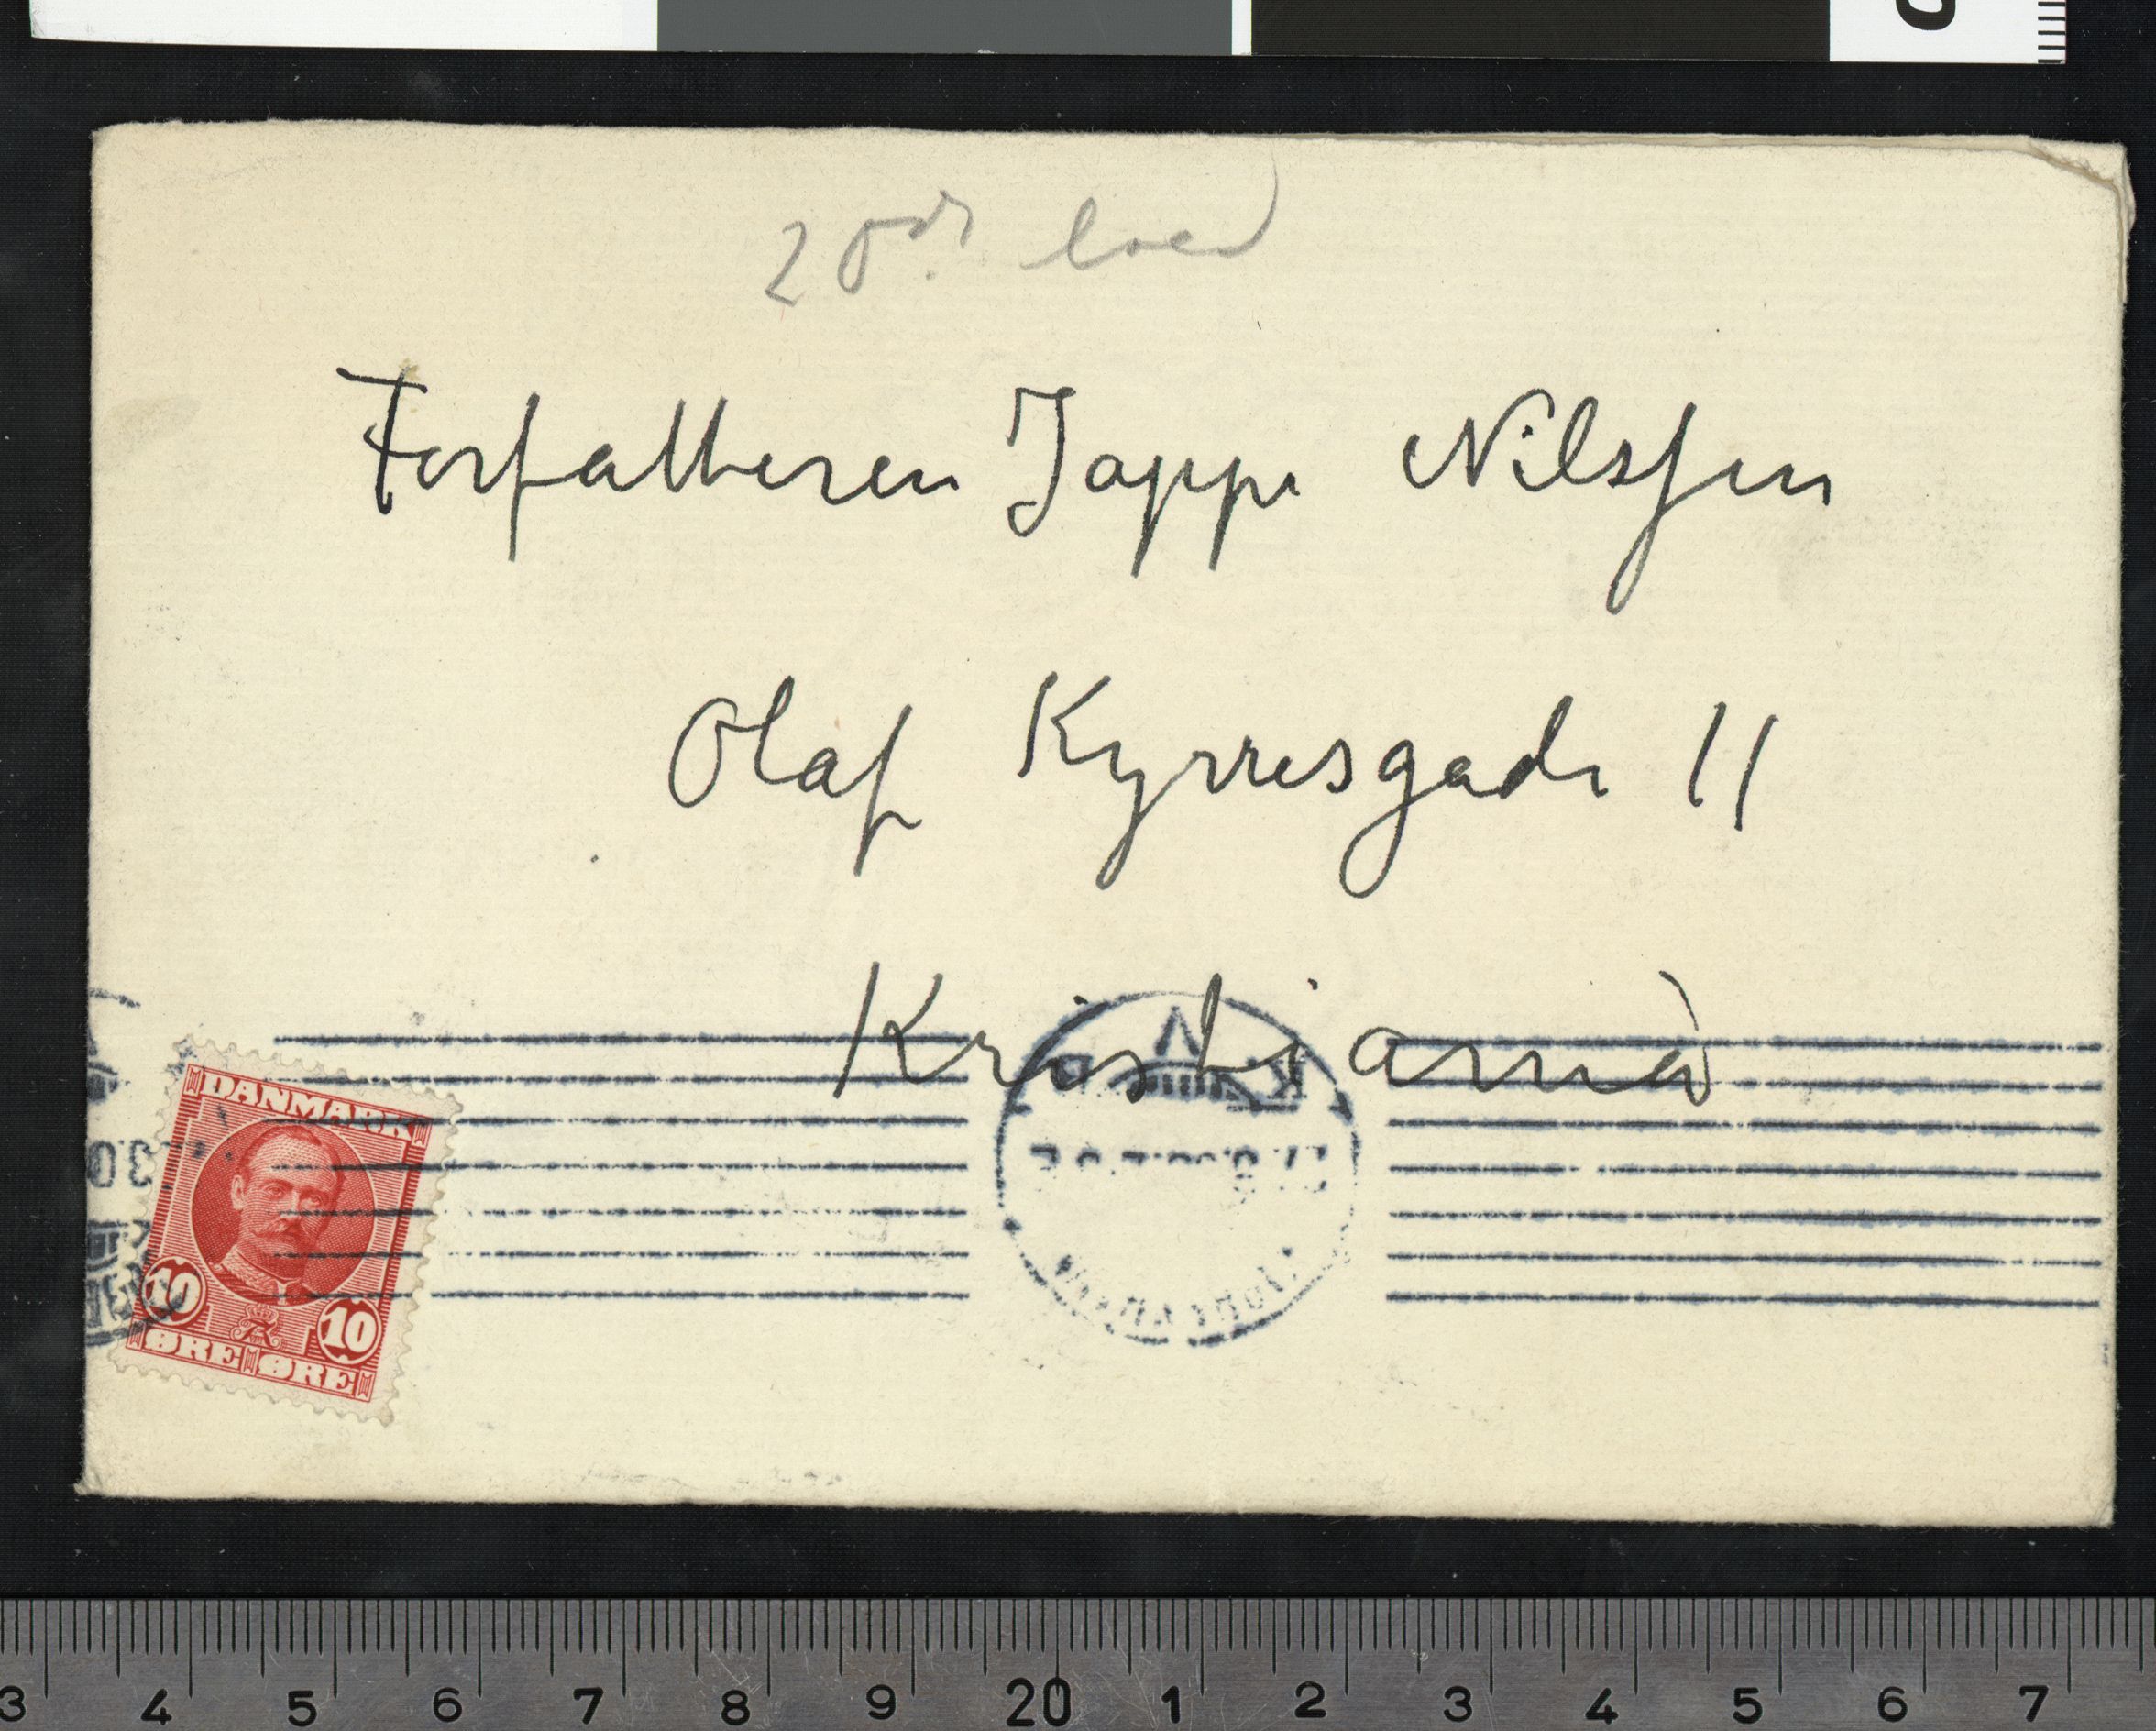 Forfatteren Jappe Nilssen
Olaf Kyrresgade 11
Kristiania
DANMARK
10 10
ØRE ØRE
3 4 5 6 7 8 9 20 1 2 3 4 5 6 7